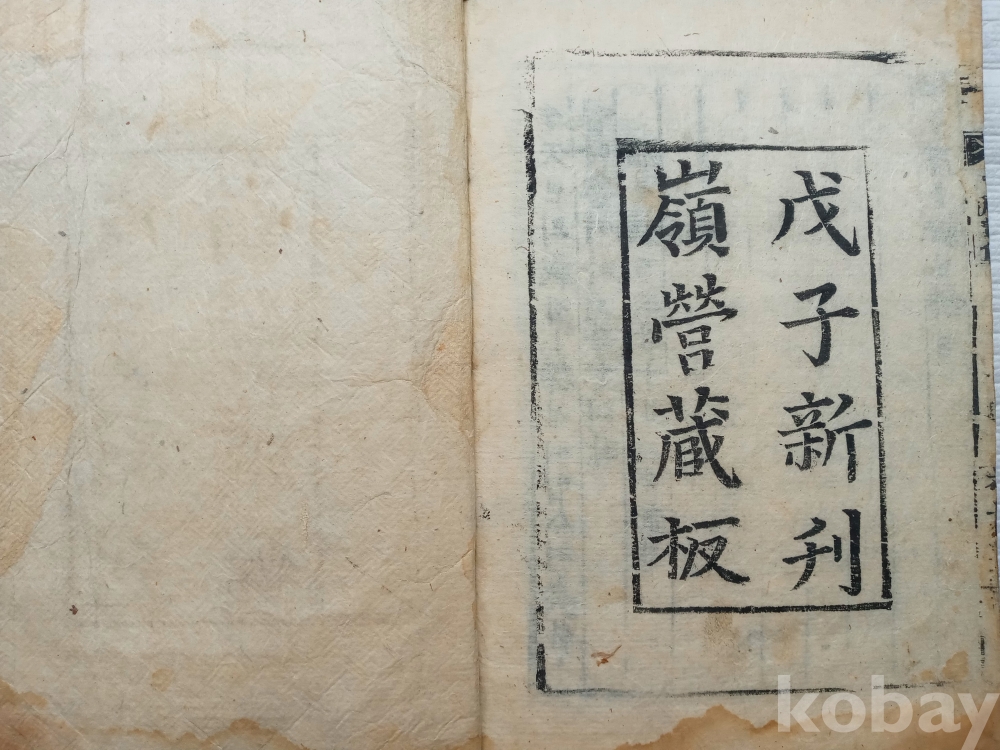 戊子新刋
嶺營蔵板
kobay